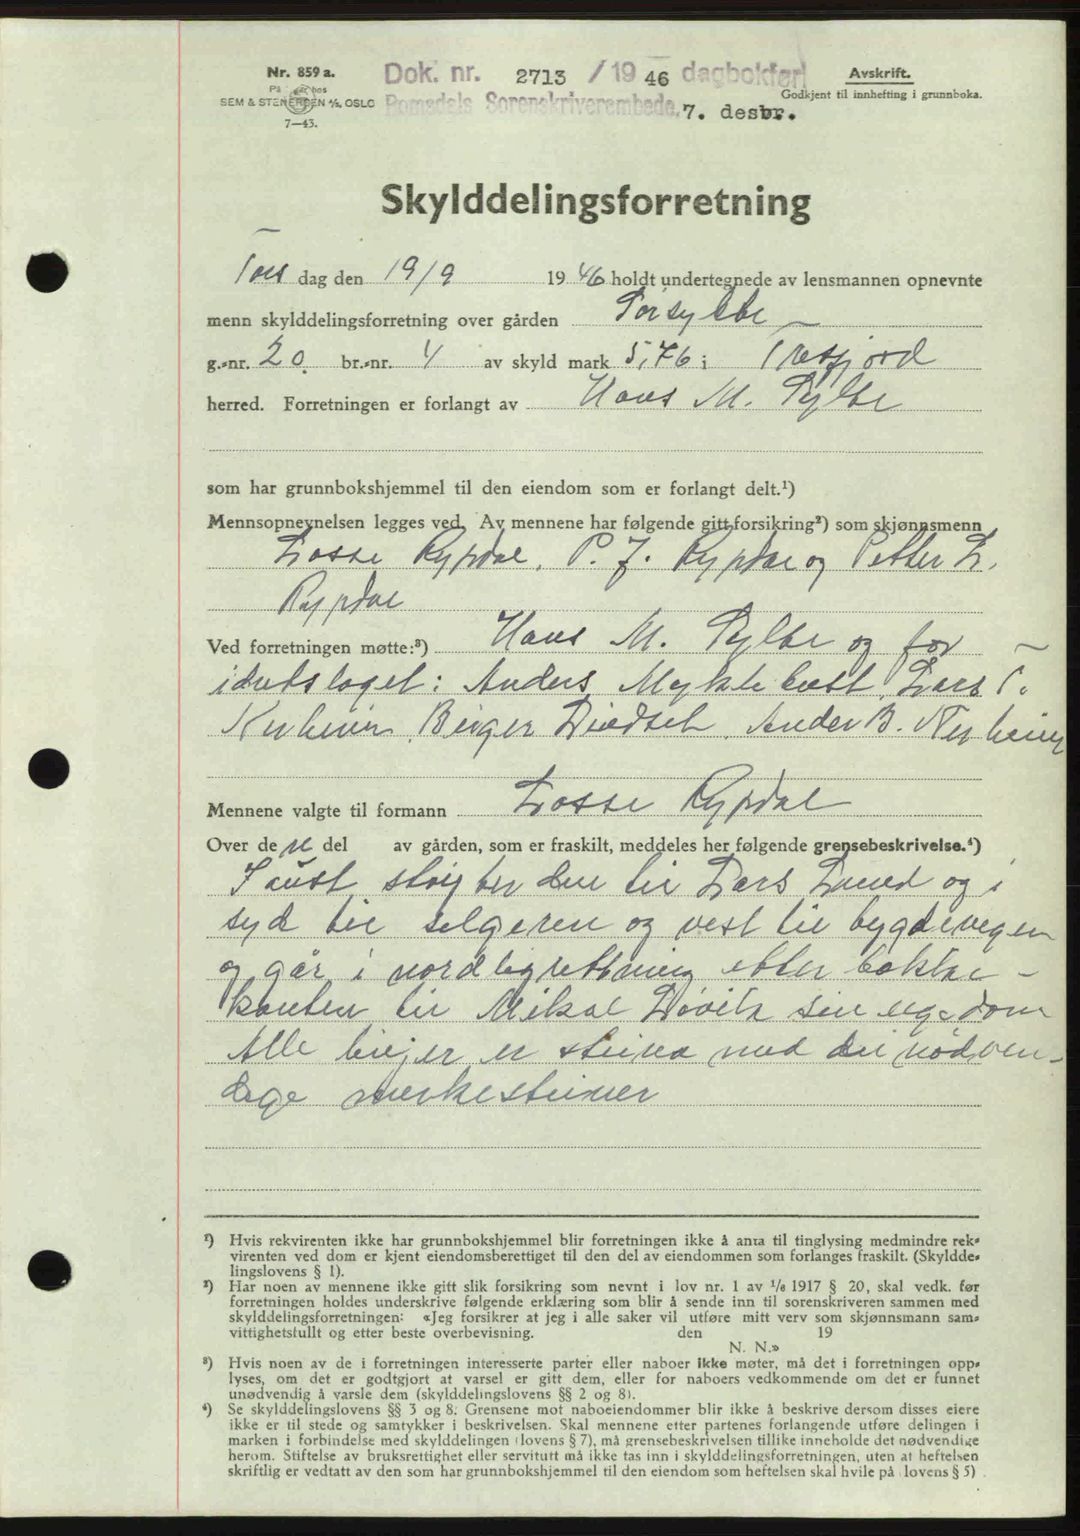 Nr. 859 a.
SEM & STENERSEN A/S, OSLO
7—43.
Dok. nr. 2713 / 19 46 dagbokført
Romsdals Sorenskriverembede, 7. desbr.
Avskrift.
Godkjent til innhefting i grunnboka.
Skylddelingsforretning
Tors dag den 19/9 1946 holdt undertegnede av lensmannen opnevnte
menn skylddelingsforretning over gården Torsylte
g.-nr. 20. br.-nr. 4 av skyld mark 5,76 i Tresfjord
herred. Forretningen er forlangt av Hans M. Sylte
som har grunnbokshjemmel til den eiendom som er forlangt delt.¹)
Mennsopnevnelsen legges ved. Av mennene har følgende gitt forsikring²) som skjønnsmenn
Lasse Rypdal, P. J. Rypdal og Petter L.
Rypdal
Ved forretningen møtte:³) Hans M. Sylte og for
idretslaget: Anders Myklebost, Lars T.
Kirheim, Birger Andr B. Kirheim
Mennene valgte til formann Lasse Rypdal
Over den del av gården, som er fraskilt, meddeles her følgende grensebeskrivelse.⁴)
I aust støiter den til Lars og i
syd til selgeren og vest til bygdevegen
og går i nordlig rettning etter bakke-
kanten til Mikal Løvik sin eigedom
Alle linjer er steina med dei nødven-
dige merkesteiner
¹) Hvis rekvirenten ikke har grunnbokshjemmel blir forretningen ikke å anta til tinglysing medmindre rek-
virenten ved dom er kjent eiendomsberettiget til den del av eiendommen som forlanges fraskilt. (Skyldde-
lingslovens § 1).
²) Har noen av mennene ikke gitt slik forsikring som nevnt i lov nr. 1 av 1/6 1917 § 20, skal vedk. før
forretningen holdes underskrive følgende erklæring som blir å sende inn til sorenskriveren sammen med
skylddelingsforretningen: «Jeg forsikrer at jeg i alle saker vil utføre mitt verv som skjønnsmann sam-
vittighetsfullt og etter beste overbevisning. den 19
N. N.»
³) Hvis noen av de i forretningen interesserte parter eller naboer ikke møter, må det i forretningen opp-
lyses, om det er godtgjort at varsel er gitt dem, eller for naboers vedkommende om det er funnet
unødvendig å varsle dem (skylddelingslovens §§ 2 og 8).
⁴) Se skylddelingslovens §§ 3 og 8. Grensene mot naboeiendommer blir ikke å beskrive dersom disses eiere
ikke er til stede og samtykker i beskrivelsen. Skal mennene etter partenes forlangende utføre delingen i
marken i forbindelse med skylddelingen (lovens § 7), må grensebeskrivelsen tillike inneholde det nødvendige
herom. Stiftelse av bruksrettighet eller servitutt må ikke tas inn i skylddelingsforretningen, uten at heftelsen
skriftlig er vedtatt av den som har grunnbokshjemmel til den eiendom som heftelsen skal hvile på (lovens § 5)